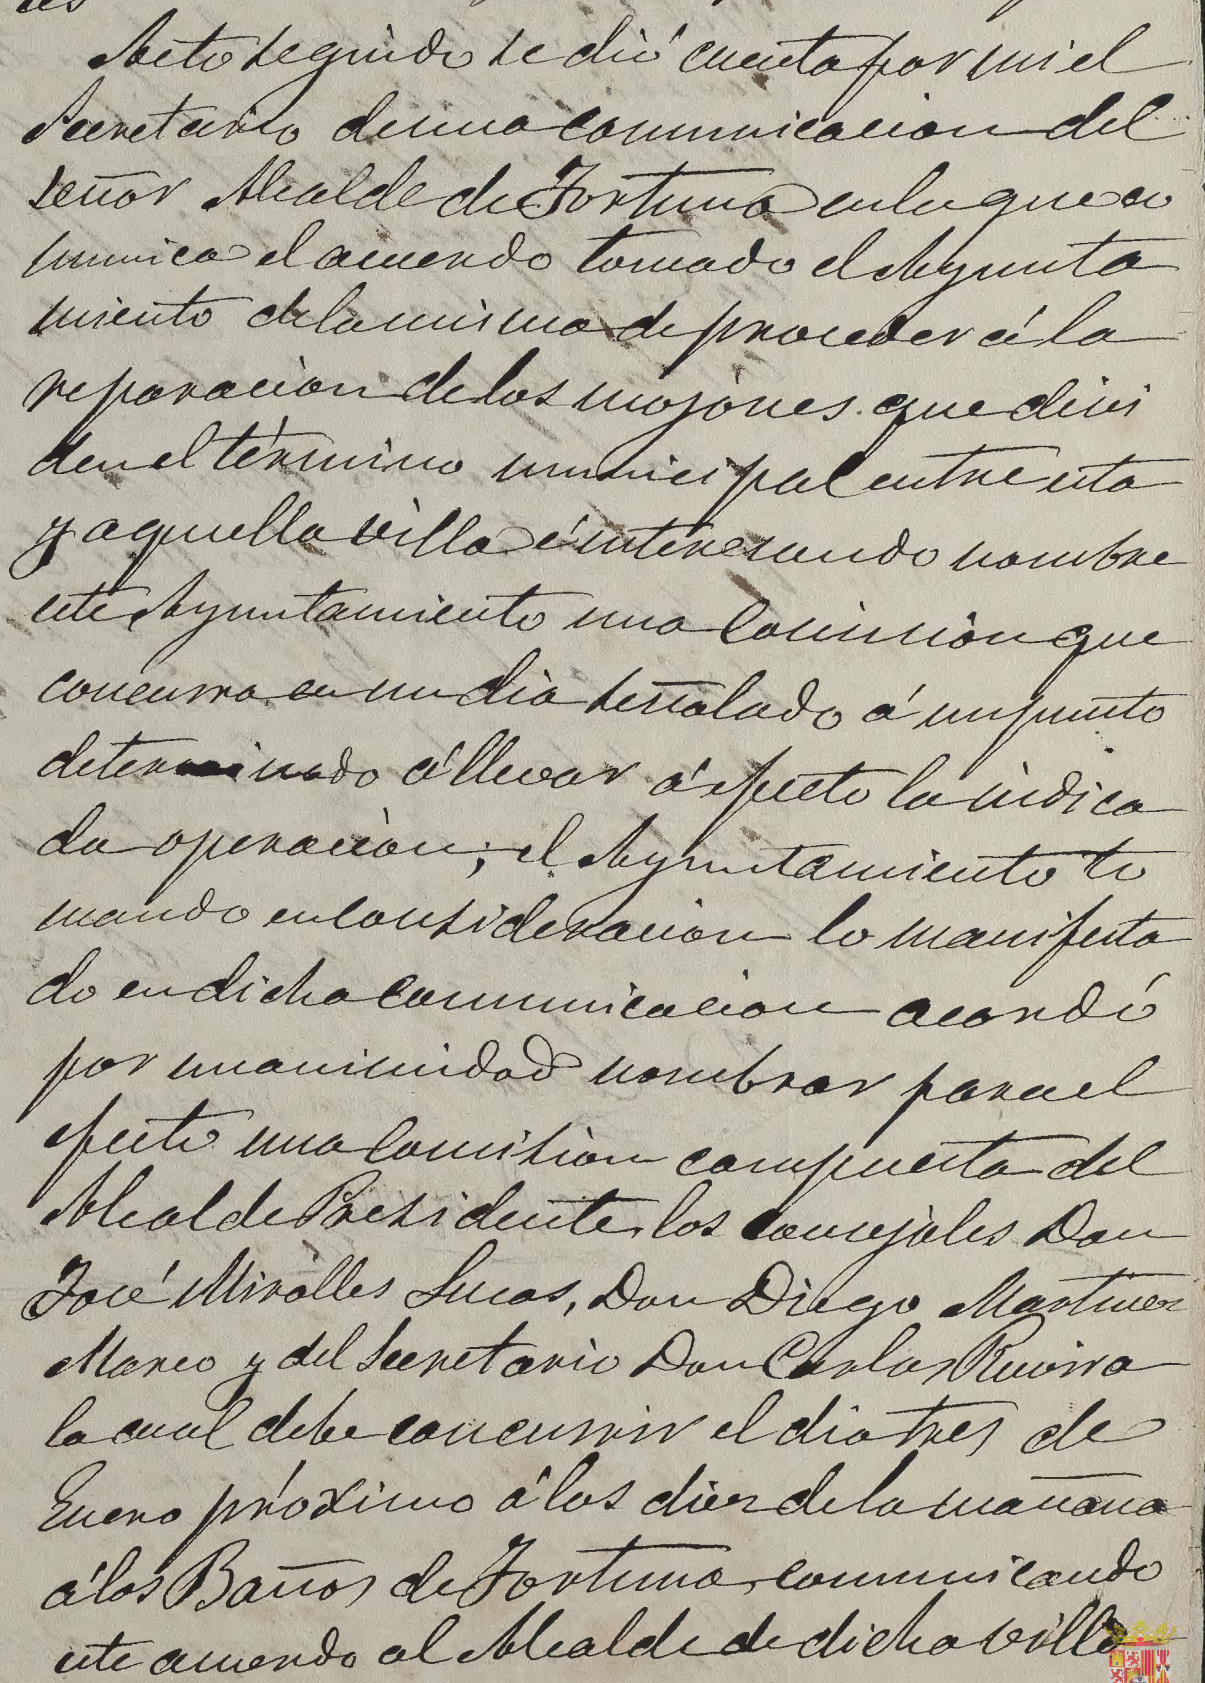 Acto seguido se dió cuenta por mi el
Secretario de una comunicacion del
señor Alcalde de Fortuna en la que co
munica el acuerdo tomado el Ayunta
miento de la misma de proceder á la
reparacion de los mojones que divi
den el término municipal entre esta
y aquella villa é interesando nombre
este Ayuntamiento una Comision que
concurra en un dia señalado á un punto
determinado á llevar á efecto la indica
da operacion; el Ayuntamiento to
mando en consideracion lo manifesta
do en dicha comunicacion acordó
por unanimidad nombrar para el
efecto una Comision compuesta del
Alcalde Presidente, los concejales Don
José Miralles Lucas, Don Diego Martinez
Marco y del Secretario Don Carlos
la cual debe concurrir el dia tres de
Enero próximo á las diez de la mañana
á los Baños de Fortuna, comunicando
este acuerdo al Alcalde de dicha villa